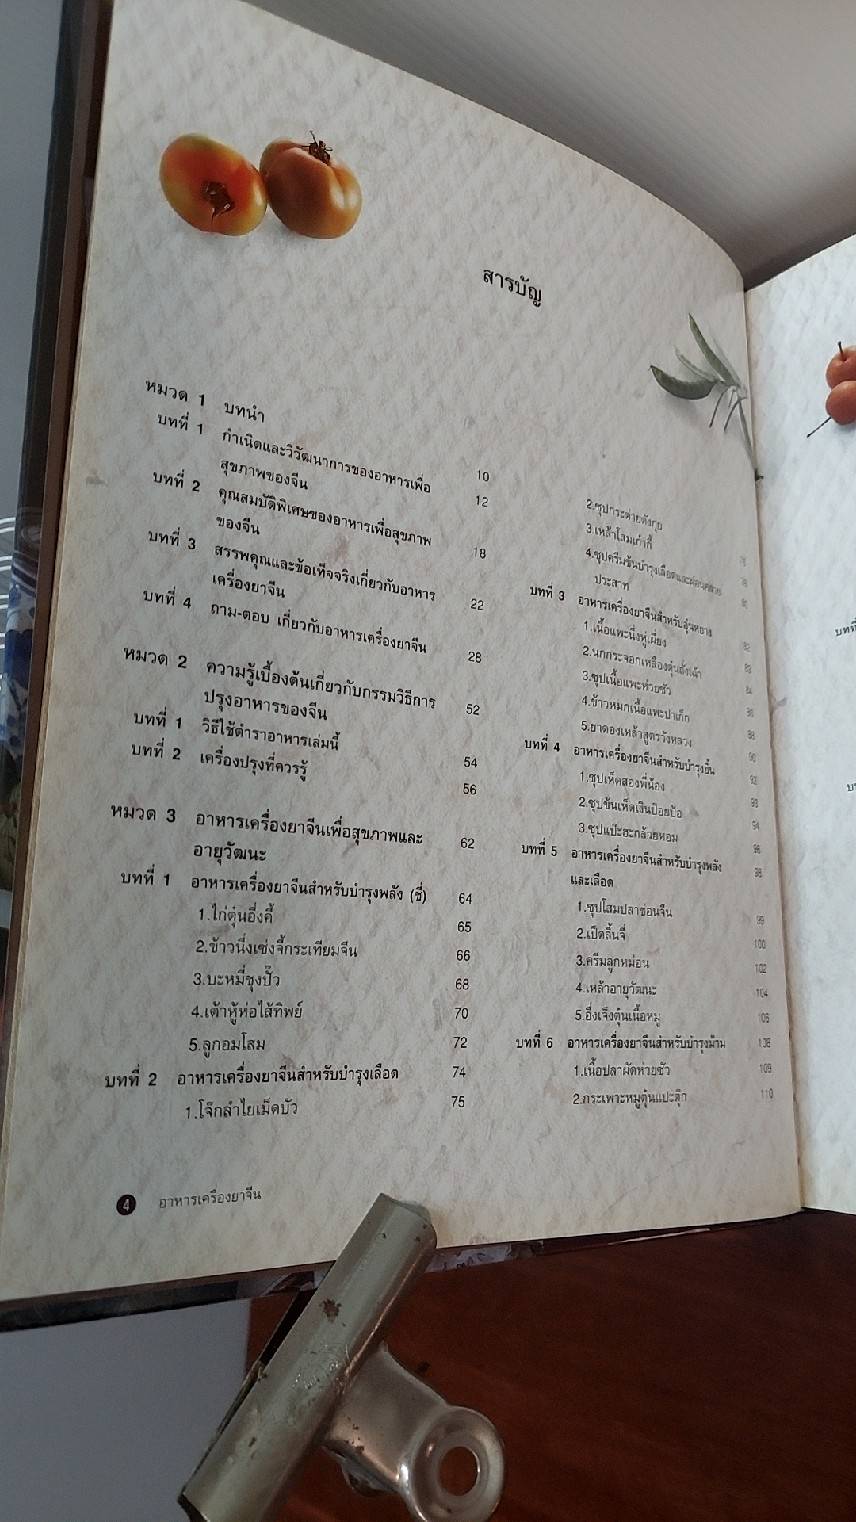 สารบัญ
หมวด 1 บทนำ 10
บทที่ 1 กำเนิดและวิวัฒนาการของอาหารเพื่อ 12
สุขภาพของจีน
บทที่ 2 คุณสมบัติพิเศษของอาหารเพื่อสุขภาพ 18
ของจีน
บทที่ 3 สรรพคุณและข้อเท็จจริงเกี่ยวกับอาหาร 22
เครื่องยาจีน
บทที่ 4 ถาม-ตอบ เกี่ยวกับอาหารเครื่องยาจีน 28
หมวด 2 ความรู้เบื้องต้นเกี่ยวกับกรรมวิธีการ 52
ปรุงอาหารของจีน
บทที่ 1 วิธีใช้ตำราอาหารเล่มนี้ 54
บทที่ 2 เครื่องปรุงที่ควรรู้ 56
หมวด 3 อาหารเครื่องยาจีนเพื่อสุขภาพและ 62
อายุวัฒนะ
บทที่ 1 อาหารเครื่องยาจีนสำหรับบำรุงพลัง (ชี่) 64
1.ไก่ตุ๋นอึ่งคี้ 65
2.ข้าวนึ่งเซ่งจี้กระเทียมจีน 66
3.บะหมี่ซุงปั๊ว 68
4.เต้าหู้ห่อไส้ทิพย์ 70
5.ลูกอมโสม 72
บทที่ 2 อาหารเครื่องยาจีนสำหรับบำรุงเลือด 74
1.โจ๊กลำไยเม็ดบัว 75
2.ซุปกระต่ายตังกุย
3.เหล้าโสมเก๋ากี้
4.ซุปครีมข้นบำรุงเลือดและผ่อนคลาย
ประสาท
บทที่ 3 อาหารเครื่องยาจีนสำหรับอุ่นหยาง 82
1.เนื้อแพะนึ่ง 83
2.นกกระจอกเหลืองตุ๋น 84
3.ซุปเนื้อแพะห่วยซัว 86
4.ข้าวหมกเนื้อแพะปาเก็ก 88
5.ยาดองเหล้าสูตรวังหลวง 90
บทที่ 4 อาหารเครื่องยาจีนสำหรับบำรุงยิน 92
1.ซุปเห็ดสองพี่น้อง 93
2.ซุปข้นเห็ดเงินป๋อยป๋อ 94
3.ซุปแป๊ะฮะกล้วยหอม 96
บทที่ 5 อาหารเครื่องยาจีนสำหรับบำรุงพลัง 98
และเลือด
1.ซุปโสมปลาช่อนจีน 99
2.เป็ดลิ้นจี่ 100
3.ครีมลูกหม่อน 102
4.เหล้าอายุวัฒนะ 104
5.อึ่งเจ็งตุ๋นเนื้อหมู 106
บทที่ 6 อาหารเครื่องยาจีนสำหรับบำรุงม้าม
1.เนื้อปลาผัดห่วยซัว 109
2.กระเพาะหมูตุ๋นแปะตุ๊ก 110
4 อาหารเครื่องยาจีน